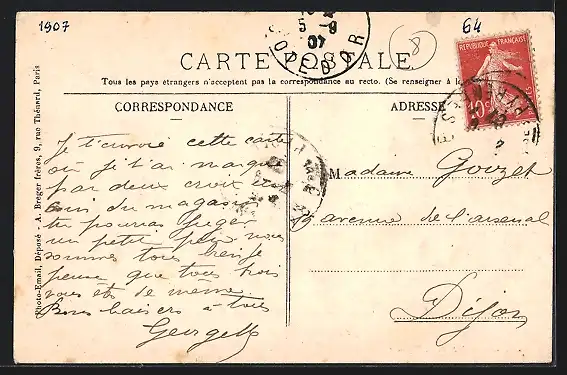 1907
64
5-9
07
COTE D'OR
8
RÉPUBLIQUE FRANÇAISE
10c
CARTE POSTALE
Tous les pays étrangers n'acceptent pas la correspondance au recto. (Se renseigner à
CORRESPONDANCE
ADRESSE
Je t'envoie cette carte
où j'ai marqué
par deux croix
du magasin
tu pourras juger
un petit peu nous
sommes tous bien je
pense que tous trois
vous êtes de même
Bons baisers à tous
Georgette
Madame Gouget
avenue de l'arsenal
Dijon
Photo-Email, Déposé - A. Breger frères, 9, rue Thénard, Paris